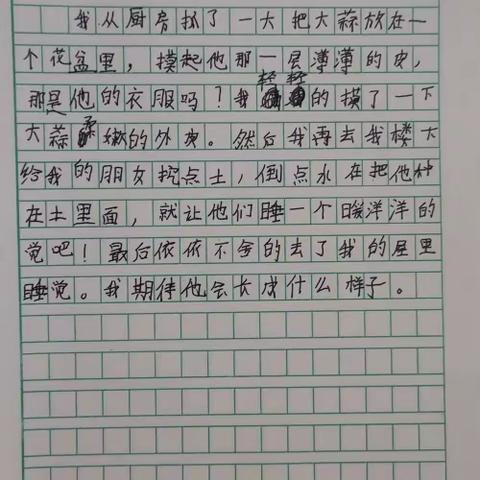 我从厨房扒了一大把大蒜放在一
个花盆里，摸起他那一层薄薄的皮，
那是他的衣服吗？我轻轻的摸了一下
大蒜柔嫩的外皮。然后我再去我楼大
给我的朋友挖点土，倒点水在把他种
在土里面，就让他们睡一个暖洋洋的
觉吧！最后依依不舍的去了我的屋里
睡觉。我期待他会长成什么样子。